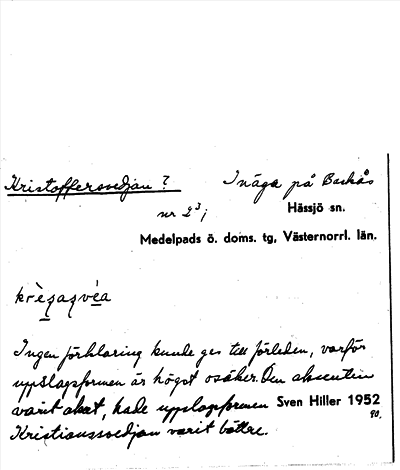 Kristoffersvedjan? Inäga på Backås
nr 2³; Hässjö sn.
Medelpads ö. doms. tg, Västernorrl. län.
krèsasvéa
Ingen förklaring kunde ges till förleden, varför
uppslagsformen är högst osäker. Om akcenten
varit akut, hade uppslagsformen Sven Hiller 1952
Kristianssvedjan varit bättre. 90.